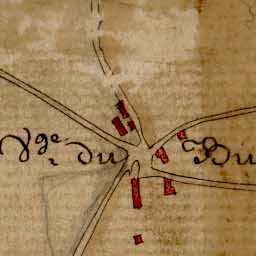 Vge du Bu